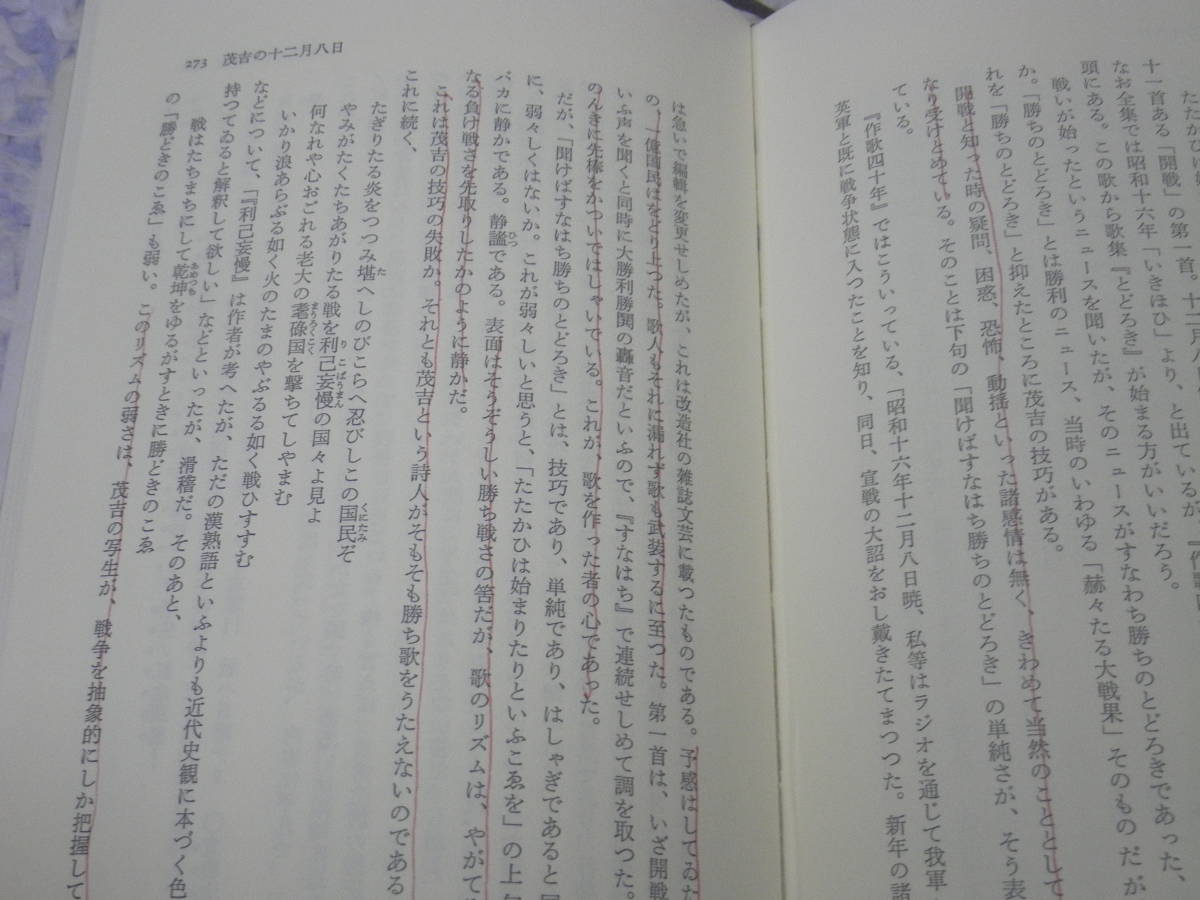 十一首ある「開戦」の第一首。
なお全集では昭和十六年「いきほひ」より、と出ているが
頭にある。この歌から歌集『とどろき』が始まる方がいいだろう。
戦いが始ったというニュースを聞いたが、そのニュースがすなわち勝ちのとどろきであった、
か。「勝ちのとどろき」とは勝利のニュース、当時のいわゆる「赫々たる大戦果」そのものだが
れを「勝ちのとどろき」と抑えたところに茂吉の技巧がある。
開戦と知った時の疑問、困惑、恐怖、動揺といった諸感情は無く、きわめて当然のこととして
なり受けとめている。そのことは下句の「聞けばすなはち勝ちのとどろき」の単純さが、そう表
ている。
『作歌四十年』ではこういっている、「昭和十六年十二月八日暁、私等はラジオを通じて我軍
英軍と既に戦争状態に入つたことを知り、同日、宣戦の大詔をおし戴きたてまつつた。新年の諸
273 茂吉の十二月八日
は急いで編輯を変更せしめたが、これは改造社の雑誌文芸に載つたものである。予感はしてゐた
の、一億国民はをどり上つた。歌人もそれに漏れず歌も武装するに至つた。第一首は、いざ開戦
いふ声を聞くと同時に大勝利勝鬨の轟音だといふので、『すなはち』で連続せしめて調を取つた。
のんきに先棒をかついではしゃいでいる。これが、歌を作った者の心であった。
だが、「聞けばすなはち勝ちのとどろき」とは、技巧であり、単純であり、はしゃぎであると
に、弱々しくはないか。これが弱々しいと思うと、「たたかひは始まりたりといふこゑを」の上
バカに静かである。静謐ひつである。表面はそうぞうしい勝ち戦さの筈だが、歌のリズムは、やがて
なる負け戦さを先取りしたかのように静かだ。
これは茂吉の技巧の失敗か。それとも茂吉という詩人がそもそも勝ち歌をうたえないのである
これに続く、
たぎりたる炎をつつみ堪たへしのびこらへ忍びしこの国民くにたみぞ
やみがたくたちあがりたる戦を利己妄慢りこばうまんの国々よ見よ
何なれや心おごれる老大の耄碌国まうろくこくを撃ちてしやまむ
いかり浪あらぶる如く火のたまのやぶるる如く戦ひすすむ
などについて、「『利己妄慢』は作者が考へたが、ただの漢熟語といふよりも近代史観に本づく色
持つてゐると解釈して欲しい」などといったが、滑稽だ。そのあと、
戦はたちまちにして乾坤あめつちをゆるがすときに勝どきのこゑ
の「勝どきのこゑ」も弱い。このリズムの弱さは、茂吉の写生が、戦争を抽象的にしか把握して